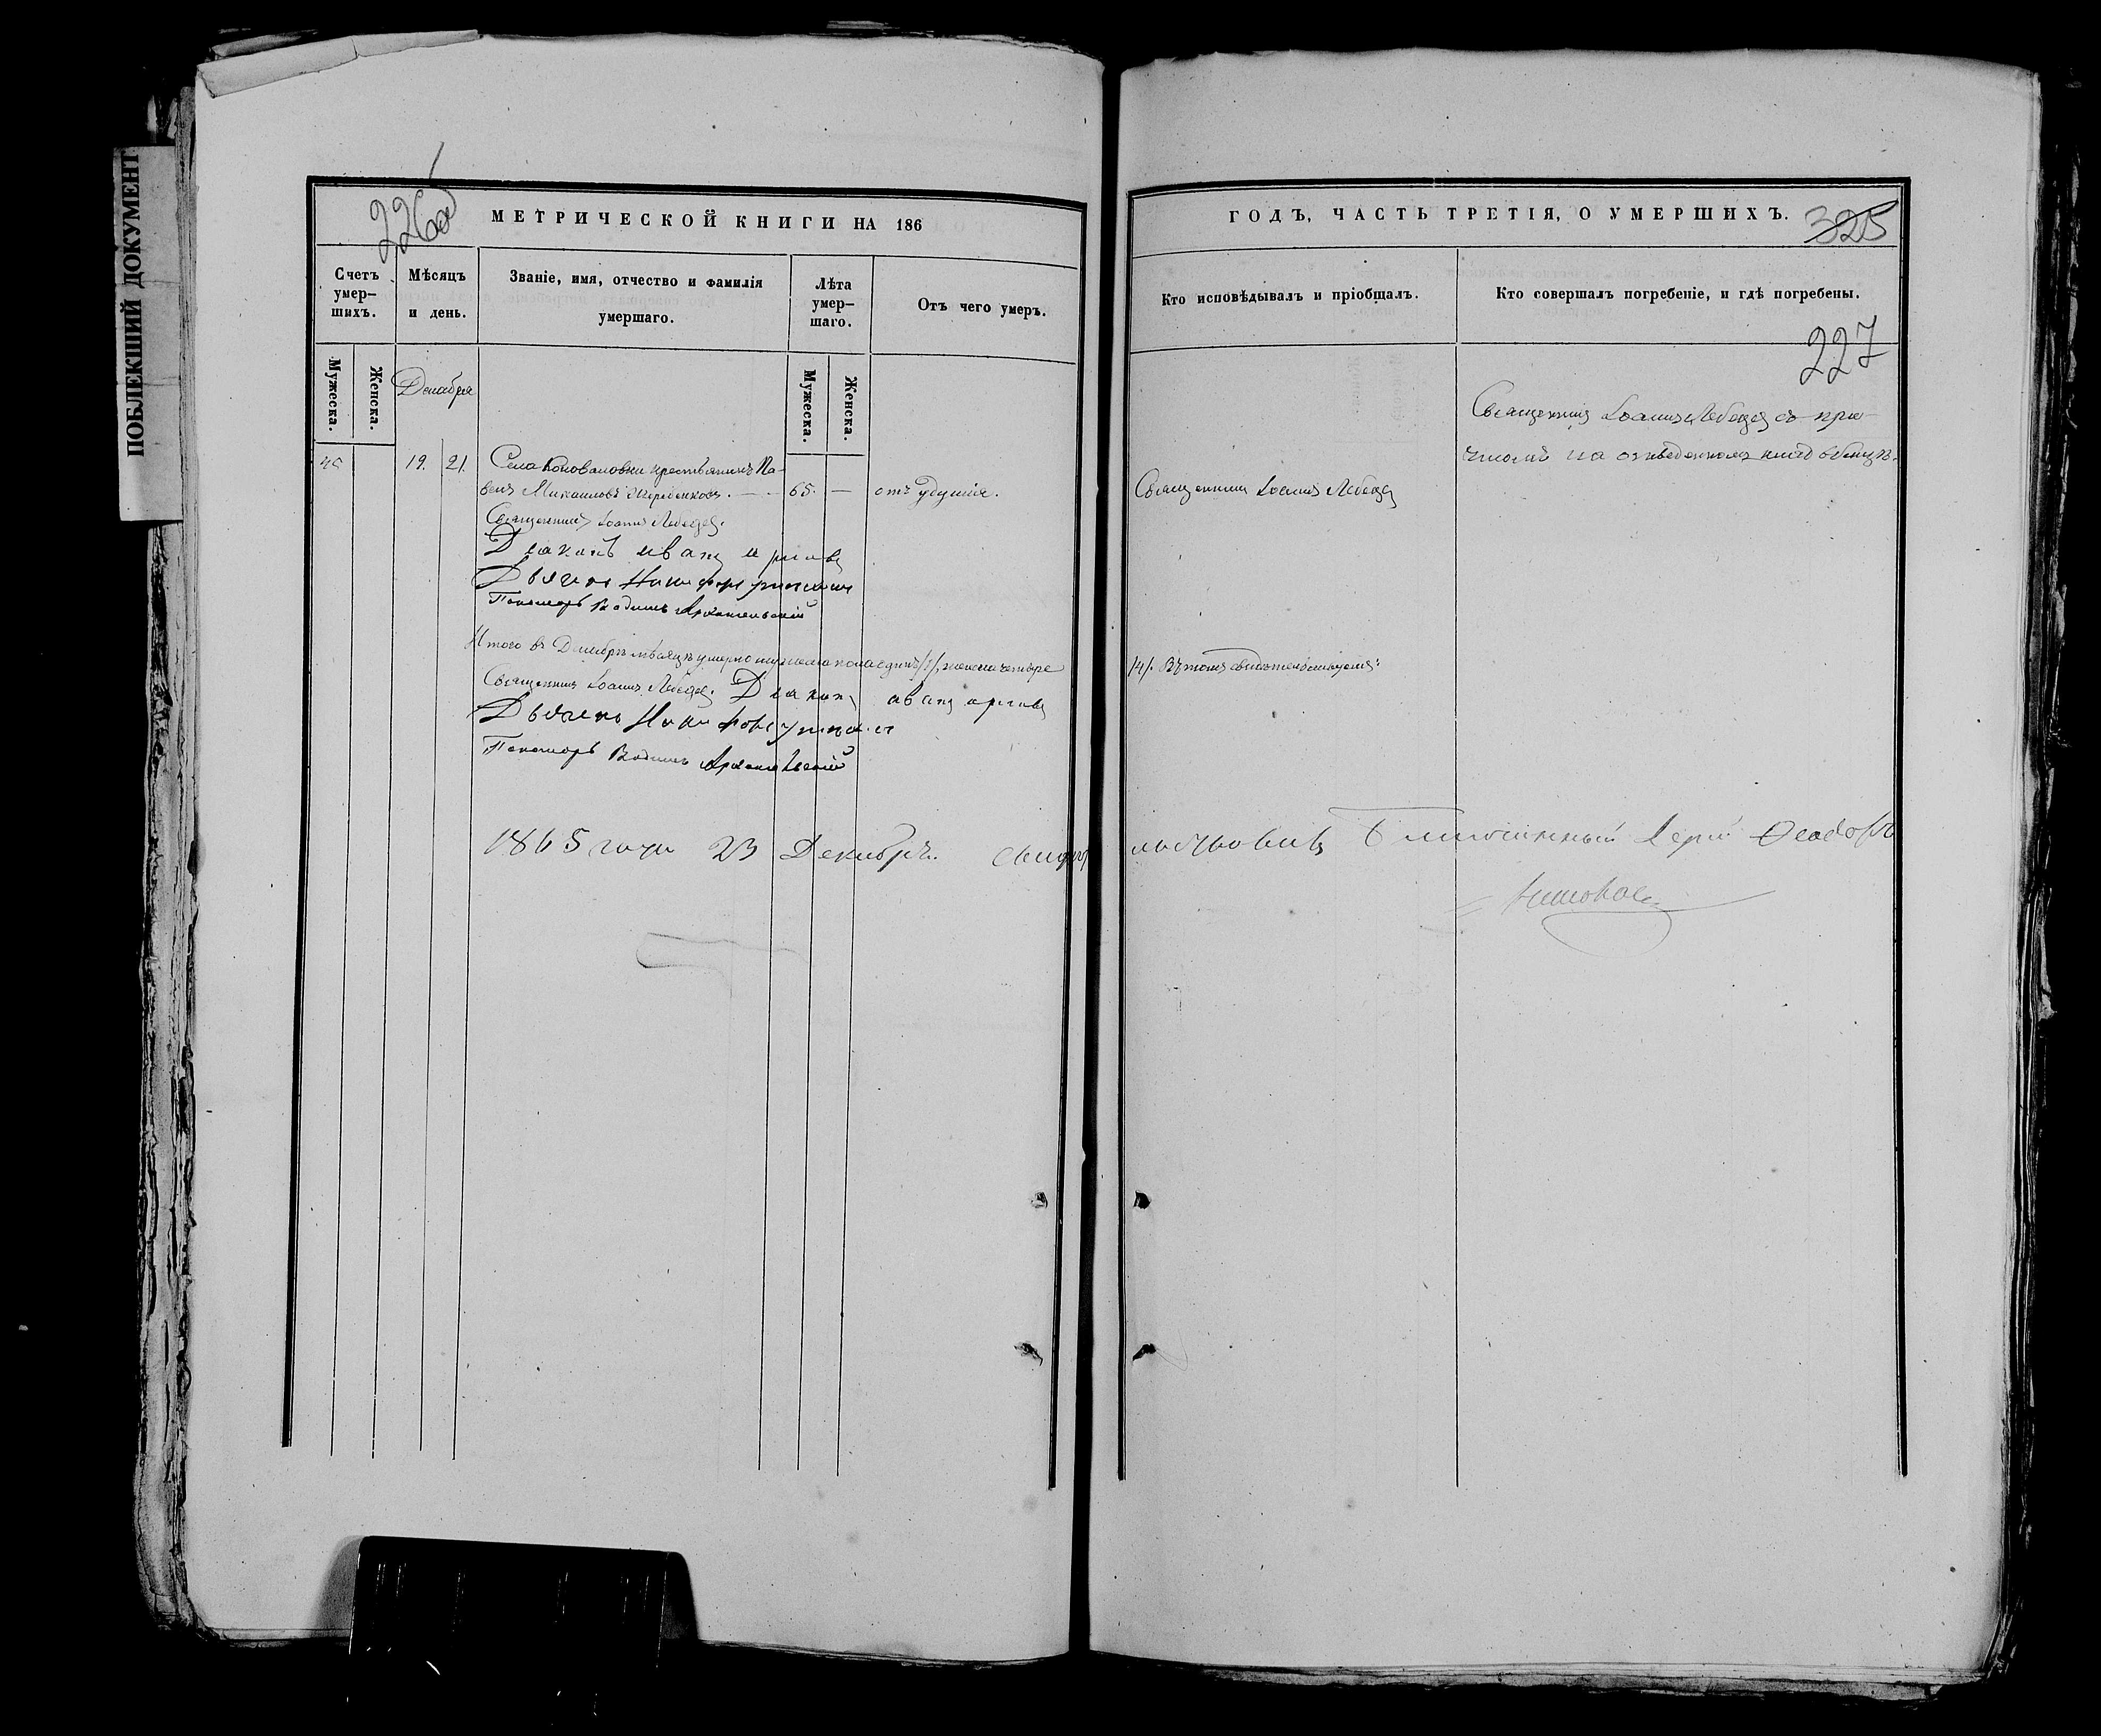 ПОБЛЕКШИЙ ДОКУМЕНТ
226об
МЕТРИЧЕСКОЙ КНИГИ НА 186
Счетъ умер-
шихъ.
Мѣсяцъ
и день.
Званіе, имя, отчество и фамилія
умершаго.
Лѣта
умер-
шаго.
Отъ чего умеръ.
Мужеска.
Женска.
Декабря
Мужеска.
Женска.
45
19.
21.
Села Коноваловки крестьянинъ Па-
велъ Михаиловъ
65.
—
отъ удушія.
Священникъ Іоаннъ Лебедев.
Діаконъ иванъ
Дьячекъ Никифоръ
Пономарь Вадимъ Архангельскій
Итого въ Декабрѣ мѣсяцѣ умерло мужеска пола одинъ /1/, женска четыре
Священникъ Іоаннъ Лебедев. Діаконъ иванъ
Дьячекъ Никифоръ
Пономарь Вадимъ Архангельскій
1865 года 23 Декабря.
ГОДЪ, ЧАСТЬ ТРЕТІЯ, О УМЕРШИХЪ.
325
Кто исповѣдывалъ и пріобщалъ.
Кто совершалъ погребеніе, и гдѣ погребены.
227
Священникъ Іоаннъ Лебедевъ съ при-
чтомъ на отведенномъ кладбищѣ.
Священникъ Іоаннъ Лебедев
/4/. Въ томъ свидѣтельствуемъ:
Благочинный Іерей Ѳеодоръ